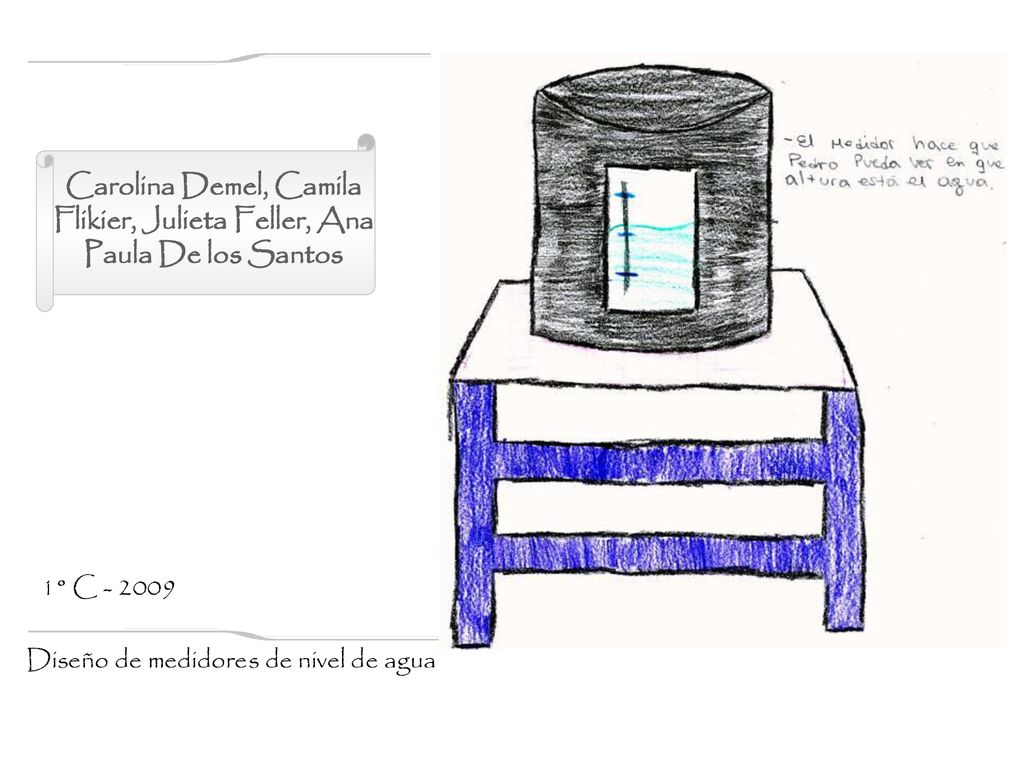 Carolina Demel, Camila
Flikier, Julieta Feller, Ana
Paula De los Santos
- El Medidor hace que
Pedro Pueda ver en que
altura está el agua.
1° C - 2009
Diseño de medidores de nivel de agua